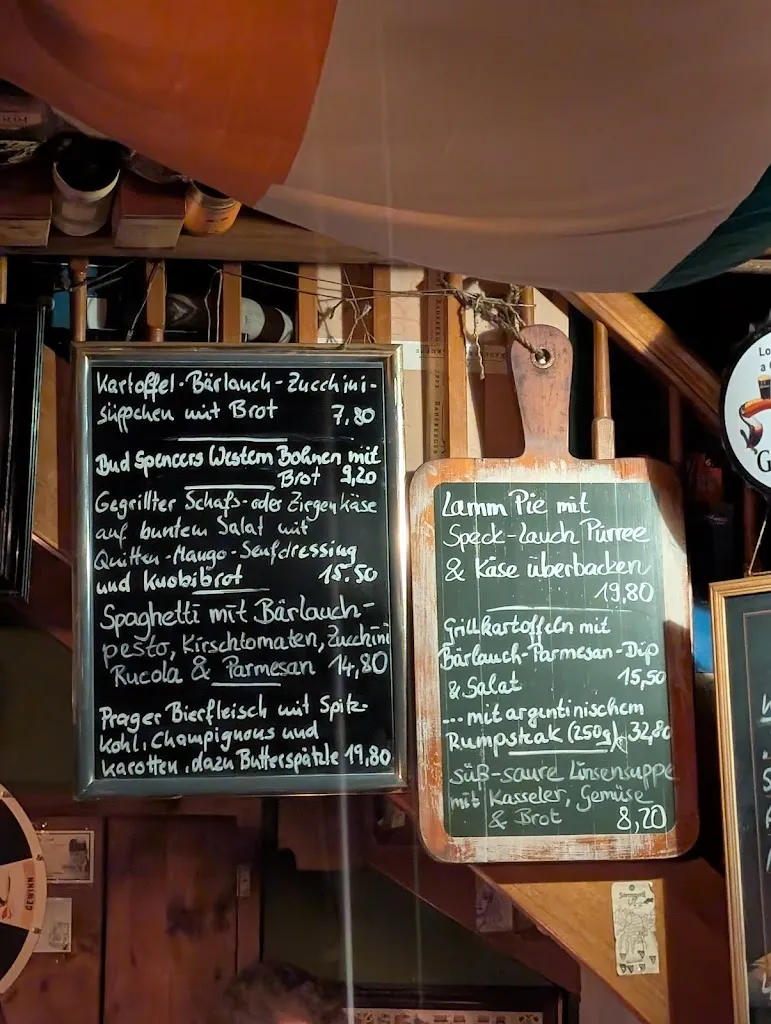 Kartoffel-Bärlauch-Zucchini-
süppchen mit Brot 7,80
Bud Spencers Western Bohnen mit
Brot 9,20
Gegrillter Schafs- oder Ziegenkäse
auf buntem Salat mit
Quitten-Mango-Senfdressing
und Knobibrot 15.50
Spaghetti mit Bärlauch-
pesto, Kirschtomaten, Zucchini
Rucola & Parmesan 14,80
Prager Bierfleisch mit Spitz-
kohl, Champignons und
Karotten, dazu Butterspätzle 19,80
Lamm Pie mit
Speck-Lauch Pürree
& Käse überbacken
19,80
Grillkartoffeln mit
Bärlauch-Parmesan-Dip
& Salat 15,50
... mit argentinischem
Rumpsteak (250g) 32,80
süß-saure Linsensuppe
mit Kasseler, Gemüse
& Brot 8,20
Lo
a
G
GEWINN